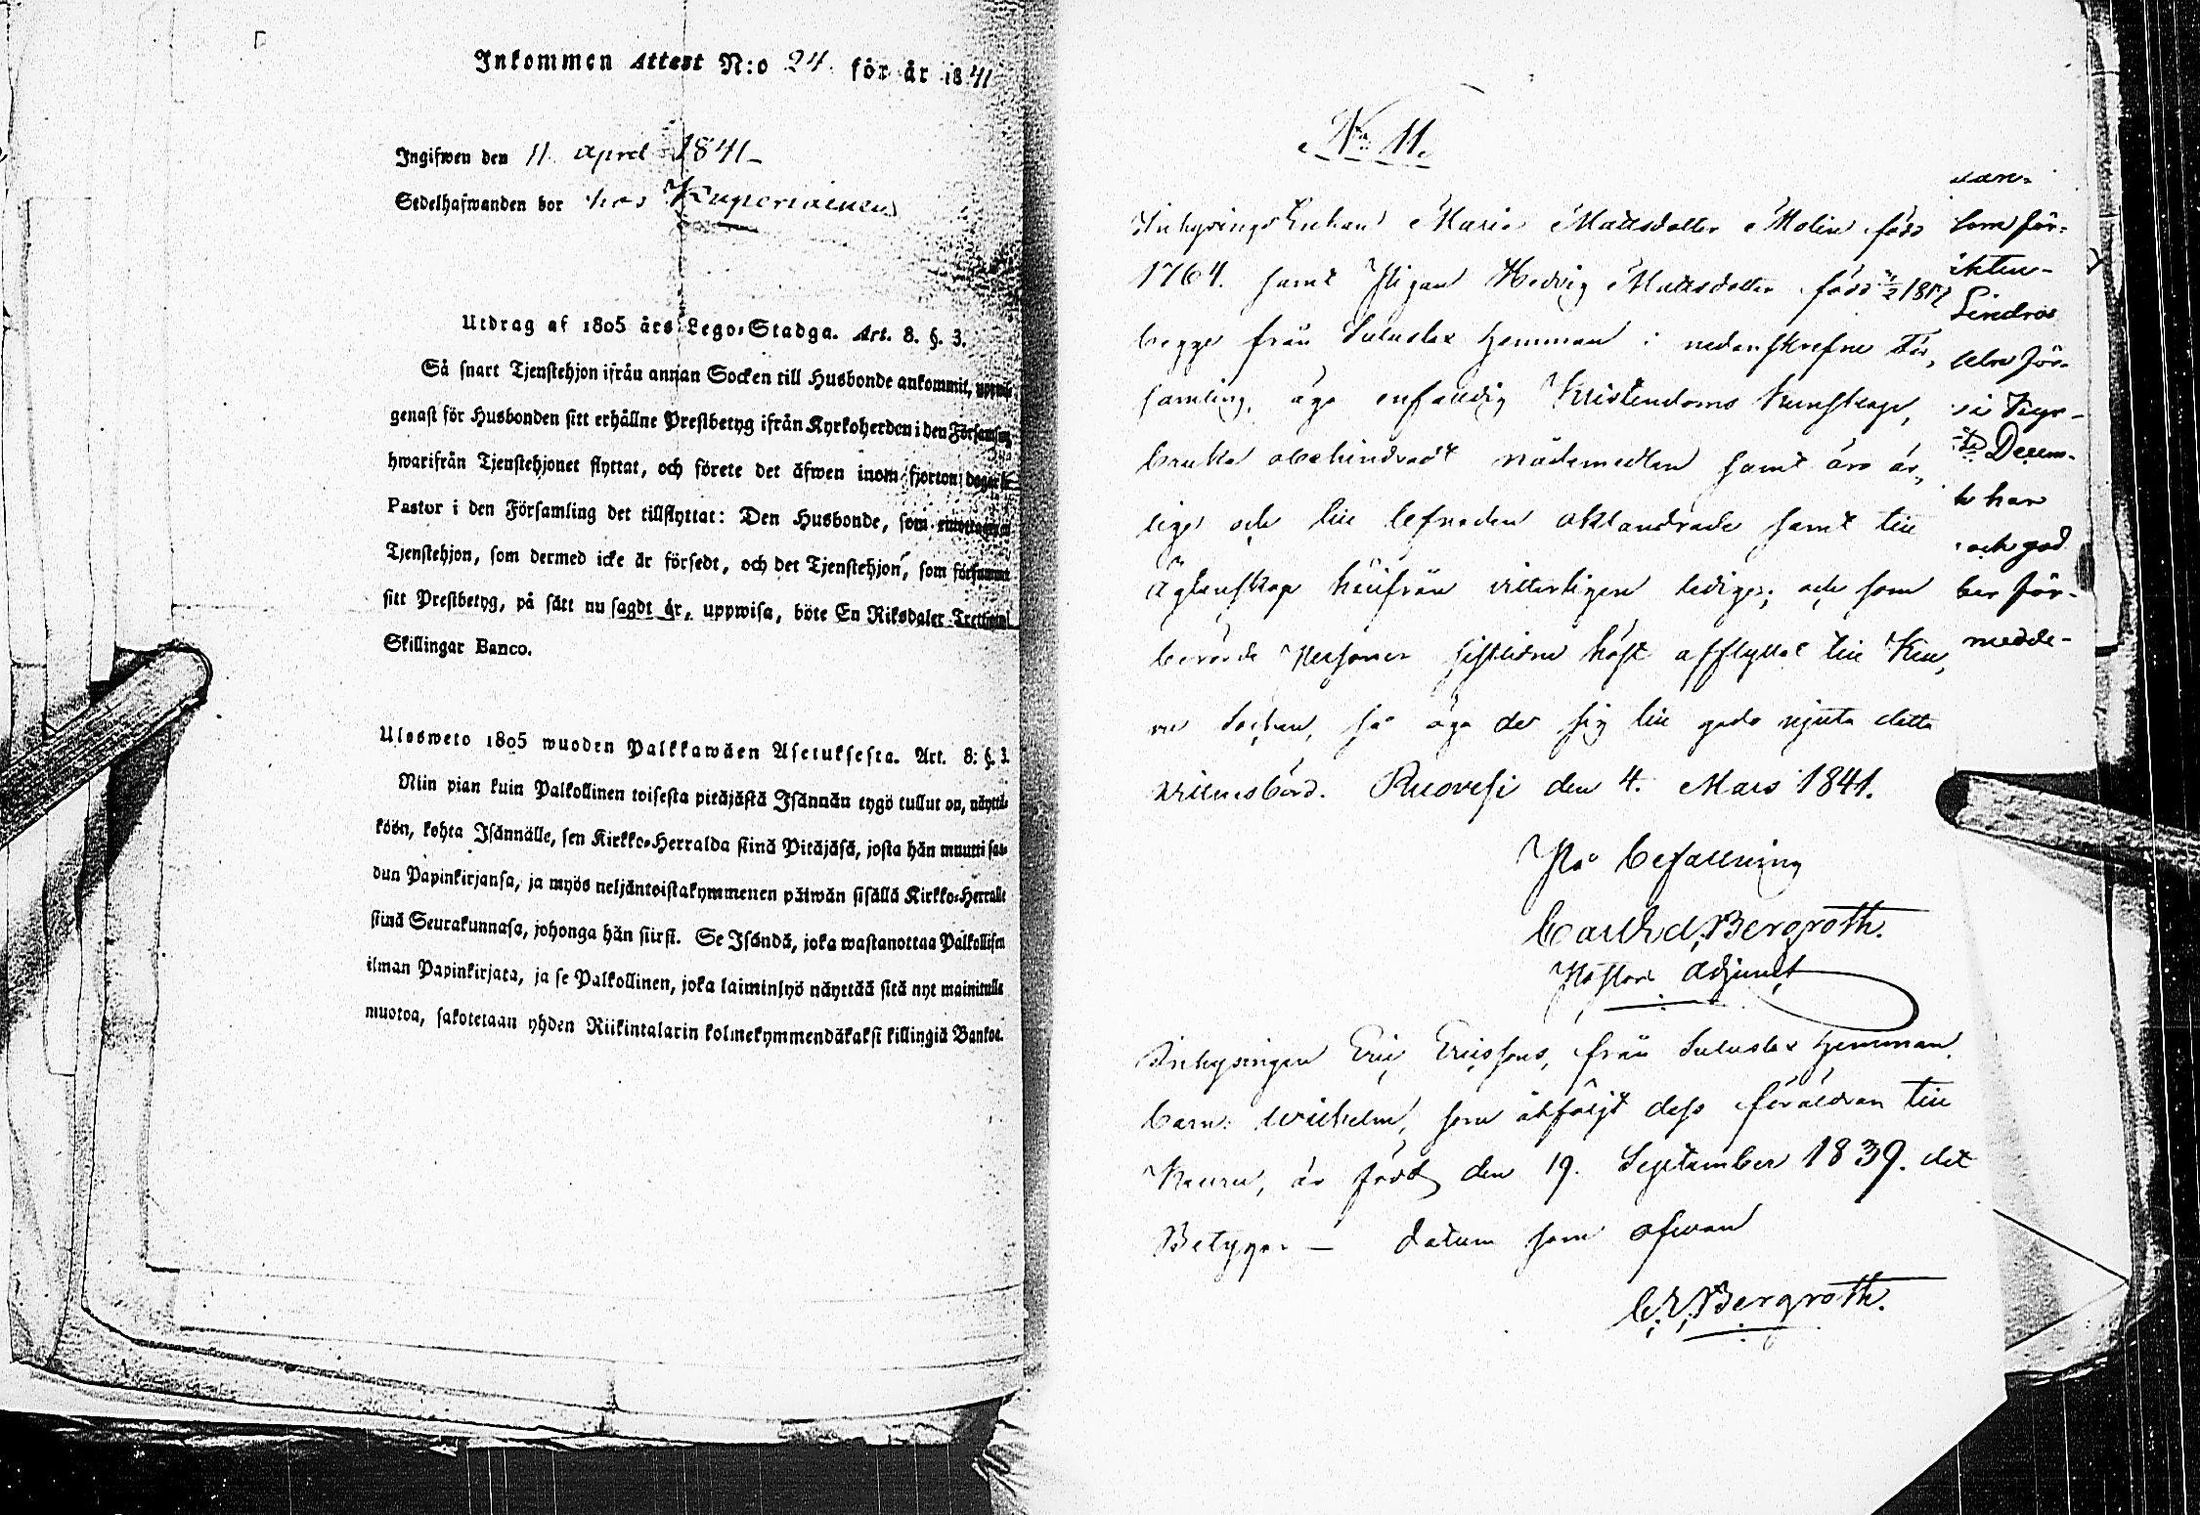 Inkommen Attest N:o 24 för år 1841
Ingifwen den 11 April 1841
Sedelhafwanden bor hos
Utdrag af 1805 års Lego-Stadga. Art. 8. §. 3.
Så snart Tjenstehjon ifrån annan Socken till Husbonde ankommit,
genast för Husbonden sitt erhållne Prestbetyg ifrån Kyrkoherden i den Församling
hwarifrån Tjenstehjonet flyttat, och förete det äfwen inom fjorton dagar
Pastor i den Församling det tillflyttat: Den Husbonde, som emottager
Tjenstehjon, som dermed icke är försedt, och det Tjenstehjon, som försummat
sitt Prestbetyg, på sätt nu sagdt är, uppwisa, böte En Riksdaler
Skillingar Banco.
Ulosweto 1805 wuoden Palkkawäen Asetuksesta. Art. 8: §. 3.
Niin pian kuin Palkollinen toisesta pitäjästä Isännän tygö tullut on, näyttä-
köön, kohta Isännälle, sen Kirkko-Herralda siinä Pitäjäsä, josta hän muutti saa-
dun Papinkirjansa, ja myös neljäntoistakymmenen päiwän sisällä Kirkko-Herralle
siinä Seurakunnasa, johonga hän siirsi. Se Isändä, joka wastanottaa Palkollisen
ilman Papinkirjata, ja se Palkollinen, joka laiminlyö näyttää sitä nyt mainitulla
muotoa, sakotetaan yhden Riikintalarin kolmekymmendäkaksi killingiä Bankoa.
No 11.
Inhysings Enkan Maria Mattsdotter Molin född
1764. samt Pigan Hedvig Mattsdotter född 1817
begge från hemman i nedanskrefne För-
samling, äga enfaldig Kristendoms kunskap,
bruka obehindradt nådemedlen samt äro är-
lige och till lefnaden oklandrade samt till
Ägtenskap härifrån vitterligen lediga; och som
berörde Personer sistlidne höst afflyttat till Keu-
ru Socken, så äga de sig till godo njuta detta
vittnesbörd. Ruovesi den 4. Mars 1841.
På befallning
Carl Ed. Bergroth.
Pastors Adjunct
Inhysingen Eric Ericssons, från hemman,
barn: Wilhelm, som åtföljt dess föräldrar till
Keuru, är född den 19. September 1839. det
Betygar — datum som ofwan
C. E. Bergroth.
som för-
Lindros
Decem-
har
och god
ber för-
medde-